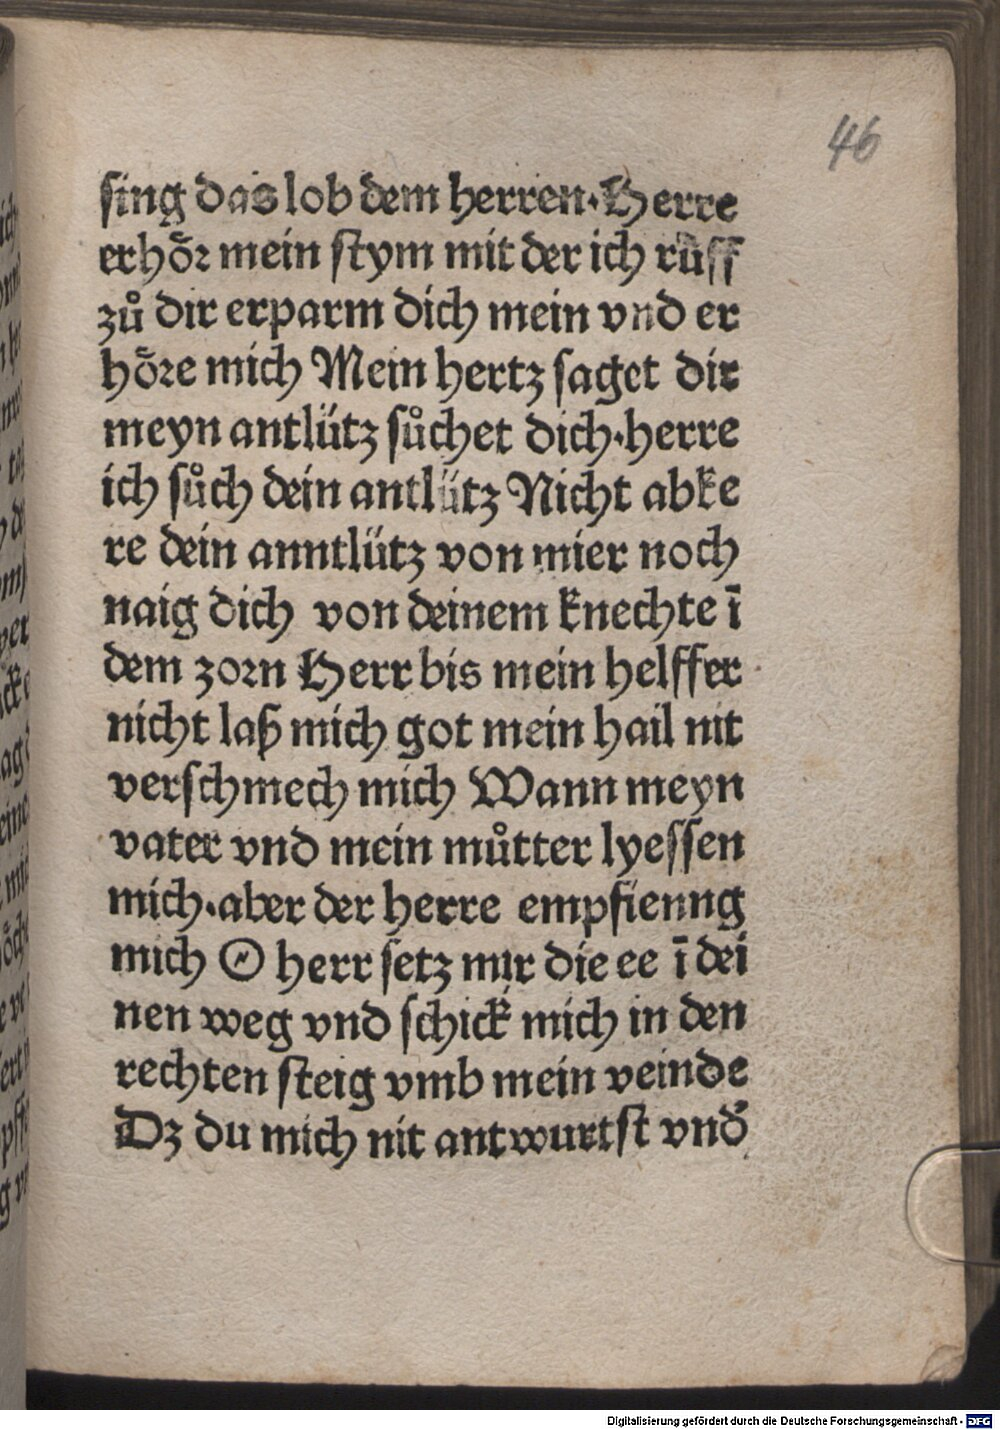 46
sing das lob dem herren·Herre
erhoͤꝛ mein stym mit der ich ruͤff
zů dir erparm dich mein vnd er
hoͤꝛe mich Mein hertz saget dir
meyn antlütz sůchet dich·herre
ich sůch dein antlütz Nicht abke
re dein anntlütz von mier noch
naig dich von deinem knechte ī
dem zoꝛn Herr bis mein helffer
nicht laß mich got mein hail nit
verschmech mich Wann meyn
vater vnd mein můtter lyessen
mich·aber der herre empfienng
mich O herr setz mir die ee ī dei
nen weg vnd schick mich in den
rechten steig vmb mein veinde
Dz du mich nit antwurtst vnd̕
Digitalisierung gefördert durch die Deutsche Forschungsgemeinschaft - DFG